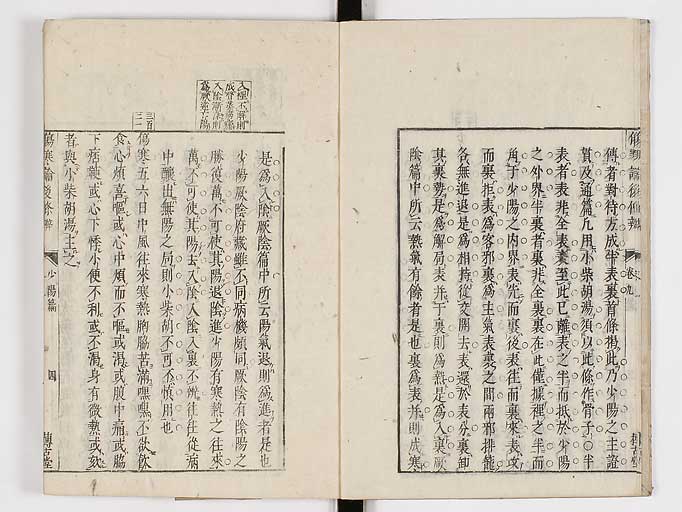 傳者對待方成半表裏首條揭此乃少陽之主證
貫及通篇凡用小柴胡湯須以此條作骨子○半
表者表非全表義至此已離表之半而抵於少陽
之外界半裏者裏非全裏裏在此僅據裡之半而
角于少陽之内界表先而裏後表往而裏來表攻
而裏拒表爲客邪裏爲主氣表裏之間兩邪排籠
各無進退是爲相持從交關去表還於表分裏卸
其裏勢是爲解局表并于裏則爲熱是爲入裏厥
陰篇中所云熱氣有餘者是也裏爲表并則成寒
是爲入陰厥陰篇中所云陽氣退則爲進者是也
少陽厥陰府藏雖不同病機頗同厥陰有陰陽之
勝復萬不可使其陽退陰進少陽有寒熱之往來
萬不可使其陽去入陰入陰入裏不辨往往從病
中釀出無陽之局則小柴胡不可不慎用也
傷寒五六日中風往來寒熱胸脇苦滿嘿嘿不欲飲
食心煩喜嘔或心中煩而不嘔或渴或腹中痛或脇
下痞鞕或心下悸小便不利或不渴身有微熱或欬
者與小柴胡湯主之
傷寒論後條辨
少陽篇
四
博古堂
卷九
三百